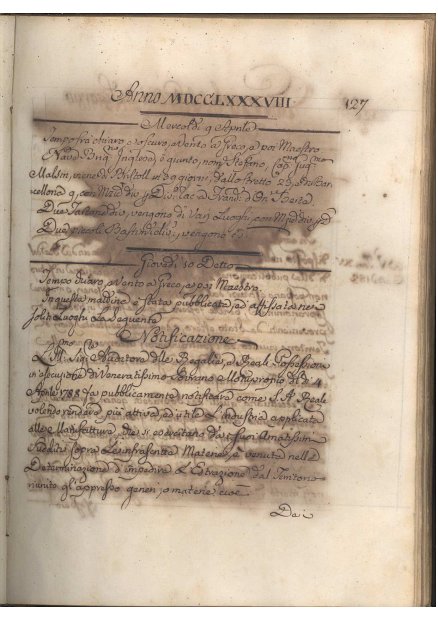 Anno MDCCLXXXVIII 127
Mercoledì 9 Aprile
Tempo frà chiaro, e oscuro, e Vento a Greco, e poi Maestro
Nave Inglese è giunto, nom: Stefano, Cap:
viene di Bristoll in 39 giorni, dallo stretto 25, da Bar-
cellona 9, con
Due Tartane di, vengono di Varj Luoghi, con Mid: e
Due piccoli Bastim: di, vengono
Giovedì 10 Detto
Tempo Chiaro, e Vento a Greco, e poi Maestro.
In questa mattina è stata pubblicata, ed affissata ne
soliti Luoghi La seguente
Notificazione
L' Ill. Sig: Auditore delle Regalie, e Reali Possessioni
in esecuzione di Veneratissimo Sovrano Motuproprio de dì 4
Aprile 1788 fa pubblicamente notificare come S. A. Reale
volendo rendere più attiva, ed utile L' Industria applicata
alle Manifatture, che si esercitano da i suoi Amatissimi
Sudditi sopra Le infrascritte Materie, è venuta nella
Determinazione d' impedire L' Estrazione dal Territorio
riunito gl' appresso generi, o materie cioè
Dei